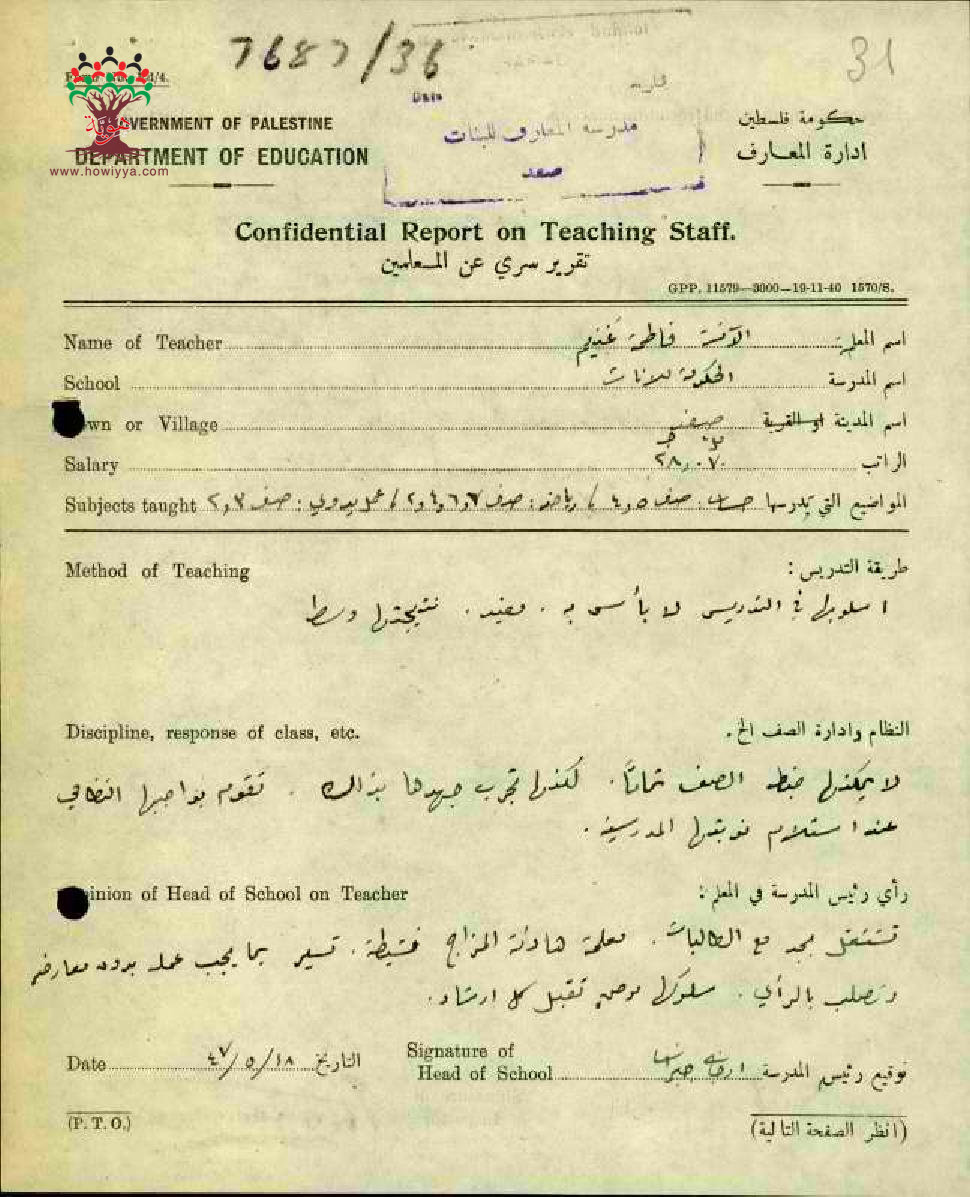 7687/36
31
هوية
www.howiyya.com
GOVERNMENT OF PALESTINE
DEPARTMENT OF EDUCATION
Date
مدرسة المعارف للبنات
صفد
حكومة فلسطين
ادارة المعارف
Confidential Report on Teaching Staff.
تقرير سري عن المعلمين
GPP. 11579—3000—19-11-40 1570/S.
Name of Teacher الآنسة فاطمة غنيم اسم المعلمة
School الحكومة للاناث اسم المدرسة
Town or Village صفد اسم المدينة او القرية
Salary ٢٨٫٠٧٠ الراتب
Subjects taught المواضيع التي يدرسها حساب صف ٥ و ٤ / رياضة : صف ٧ و ٦ و ٤ و ٢ / عمل يدوي : صف ٣ و ٢
Method of Teaching طريقة التدريس :
اسلوبها في التدريس لا بأس به . مفيد . نتيجتها وسط
Discipline, response of class, etc. النظام وادارة الصف الخ.
لا يمكنها ضبط الصف تماماً . لكنها تجرب جهدها بذلك . تقوم بواجبها النظامي
عند استلام نوبتها المدرسية .
Opinion of Head of School on Teacher رأي رئيس المدرسة في المعلم :
تشتغل بجد مع الطالبات . معلمة هادئة المزاج نشيطة . تسير بما يجب عمله بدون معارضة
وتصلب بالرأي . سلوكها تقبل كل ارشاد .
Date ٤٧/٥/١٨ التاريخ
Signature of
Head of School توقيع رئيس المدرسة
(P. T. O.) (انظر الصفحة التالية)